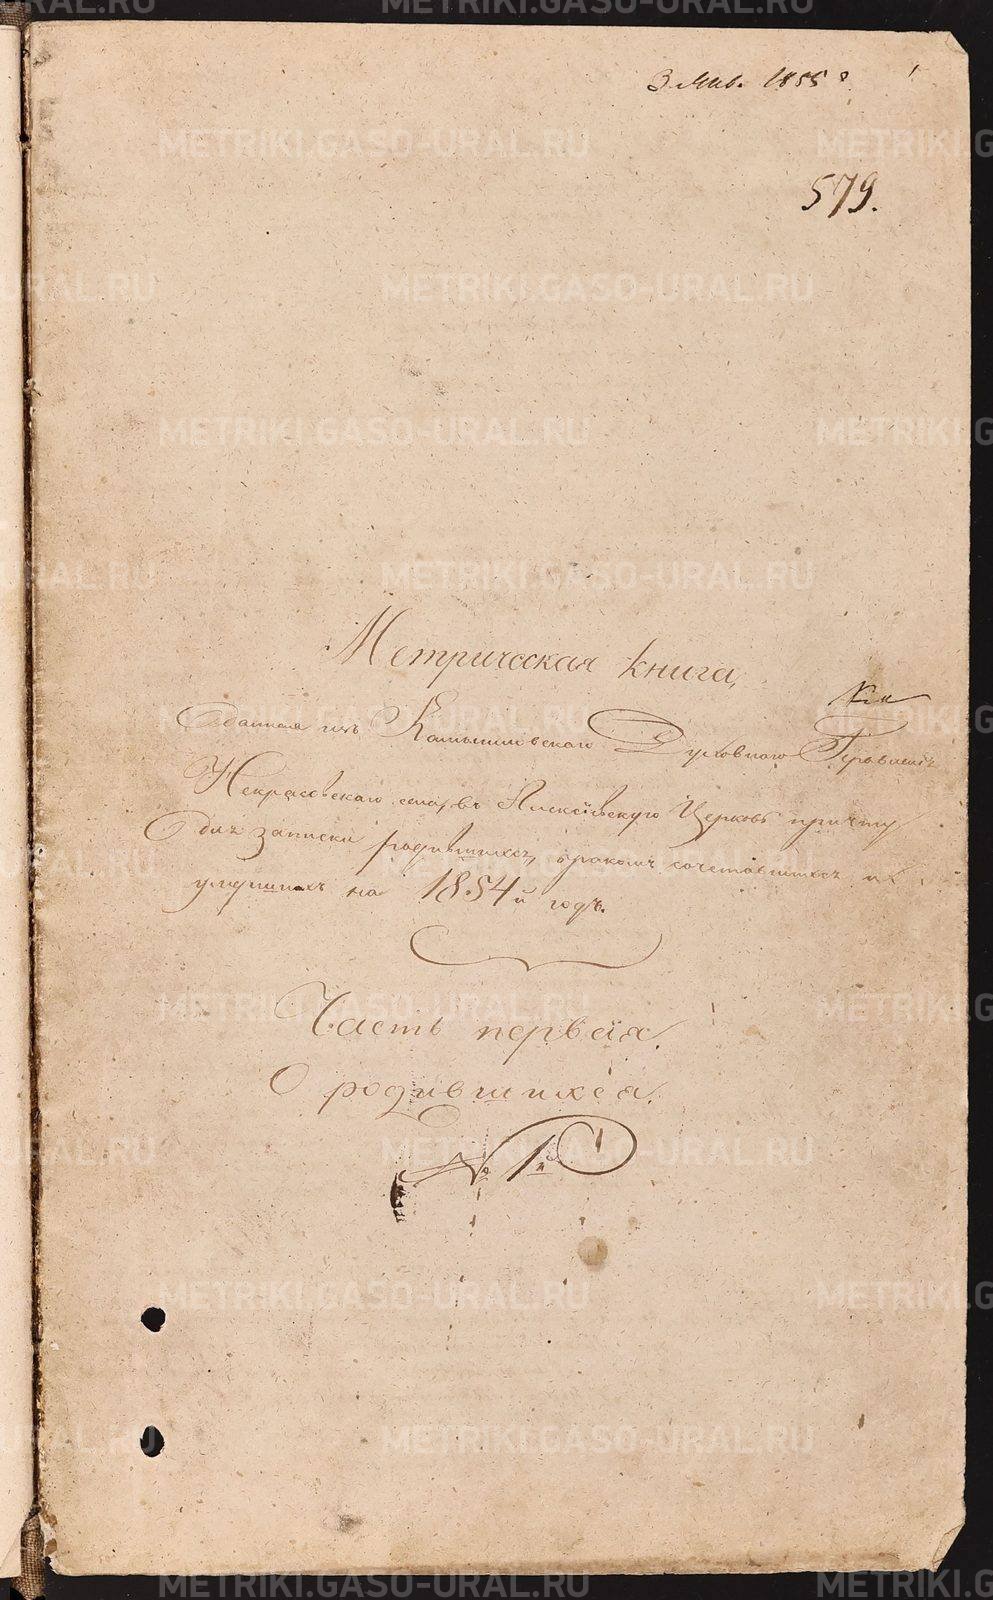 3 Янв. 1855 г.
579.
Метрическая книга,
данная изъ Камышловскаго Духовнаго Правленія
Некрасовскаго села, въ Алексіевскую Церковь причту
для записки родившихся, бракомъ сочетавшихся и
умершихъ на 1854й годъ.
Часть первая.
О родившихся.
№ 1й
METRIKI.GASO-URAL.RU